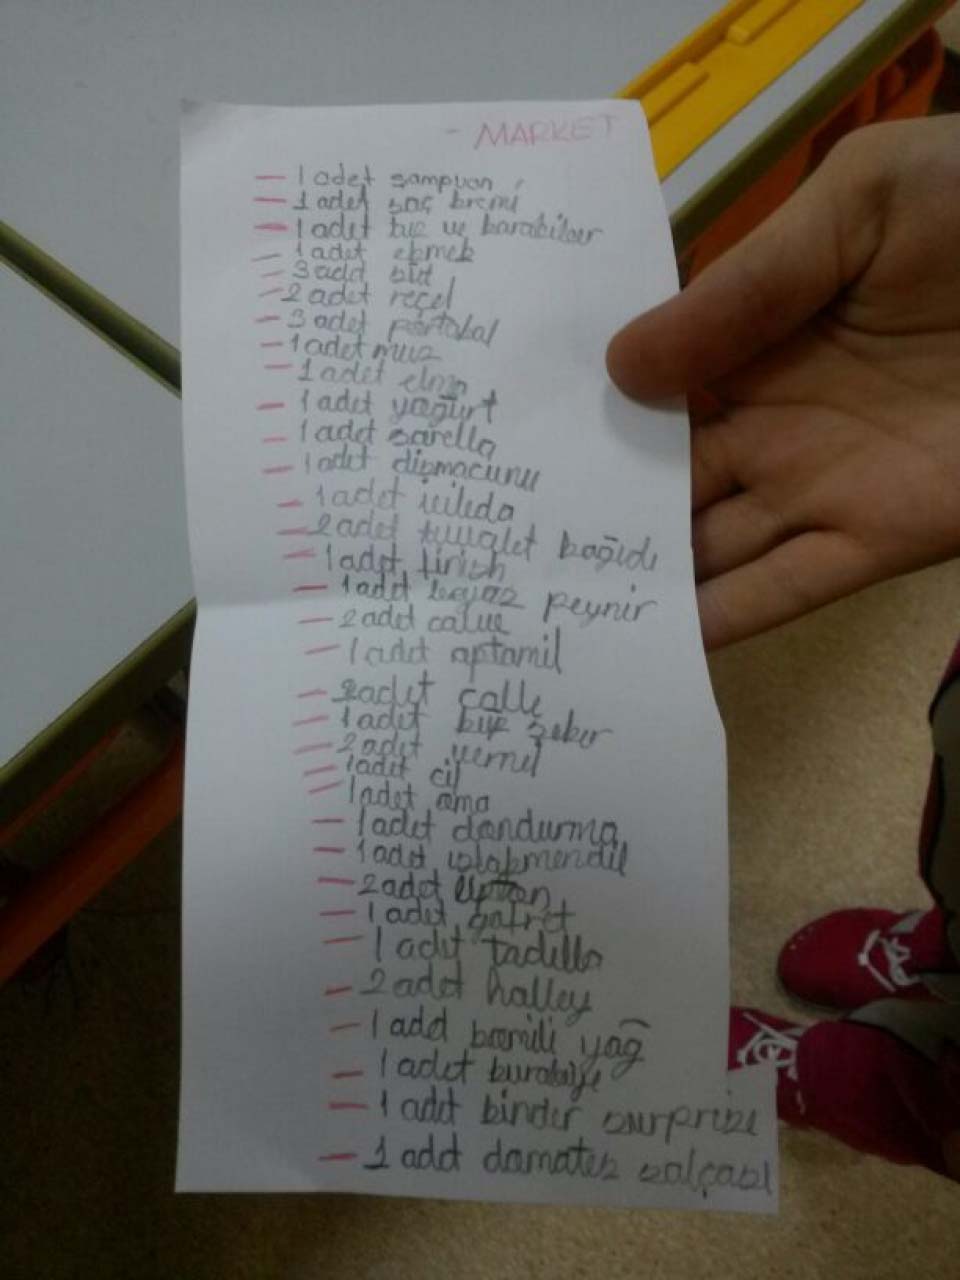 - MARKET
- 1 adet şampuan
- 1 adet saç kremi
- 1 adet tuz ve karabiber
- 1 adet ekmek
- 3 adet süt
- 2 adet reçel
- 3 adet portakal
- 1 adet muz
- 1 adet elma
- 1 adet yoğurt
- 1 adet sarella
- 1 adet dişmacunu
- 1 adet
- 2 adet tuvalet kağıdı
- 1 adet finish
- 1 adet beyaz peynir
- 2 adet
- 1 adet aptamil
- 2 adet
- 1 adet küp şeker
- 2 adet
- 1 adet
- 1 adet
- 1 adet dondurma
- 1 adet ıslakmendil
- 2 adet lipton
- 1 adet gofret
- 1 adet tadella
- 2 adet halley
- 1 adet kremili yağ
- 1 adet kurabiye
- 1 adet kinder surprize
- 1 adet domates salçası